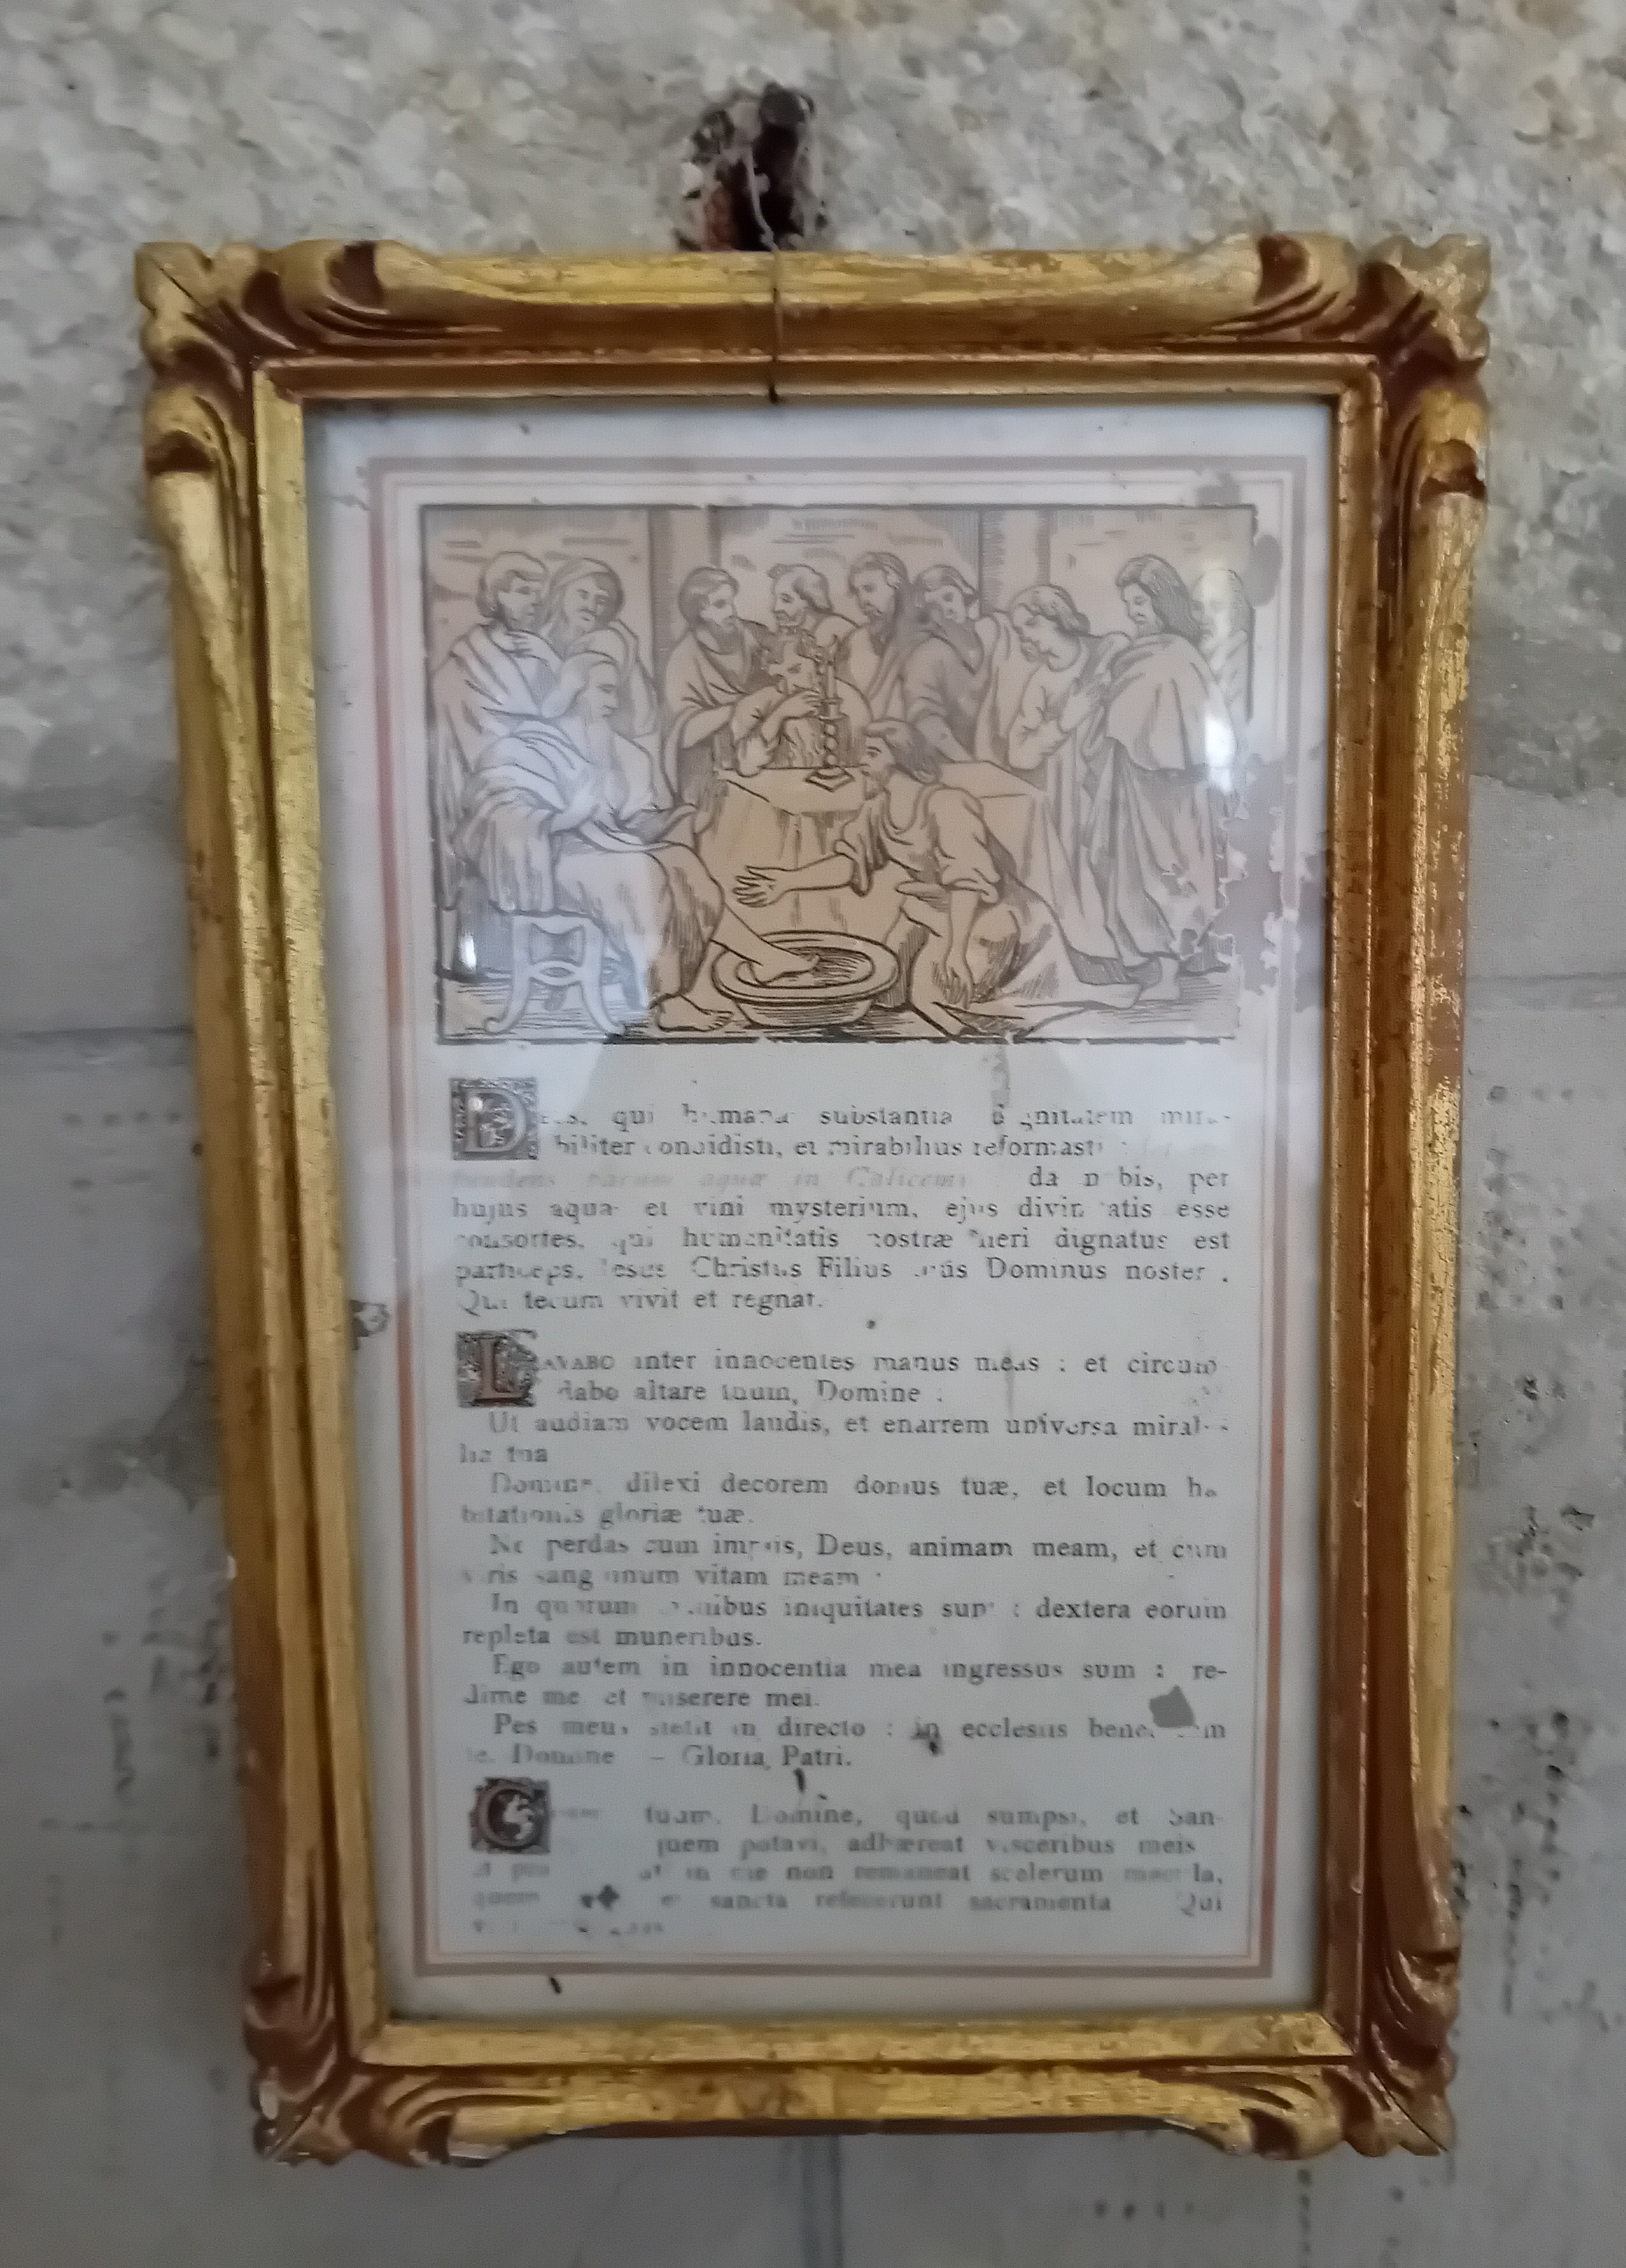 qui substantia
biliter et mirabilius reformasti
aquæ in Calicem da per
hujus aquæ et vini mysterium, ejus esse
consortes, qui humanitatis nostræ fieri dignatus est
particeps, Jesus Christus Filius Dominus noster :
Qui tecum vivit et regnat.
LAVABO inter innocentes manus meas : et circum-
dabo altare tuum, Domine :
Ut audiam vocem laudis, et enarrem universa
tua
Domine, dilexi decorem domus tuæ, et locum ha-
bitationis gloriæ tuæ.
Ne perdas cum impiis, Deus, animam meam, et cum
vitam meam
In quorum iniquitates sunt : dextera eorum
repleta est muneribus.
Ego autem in innocentia mea ingressus sum : re-
dime me et miserere mei.
Pes meus stetit in directo : in ecclesiis
te, Domine – Gloria Patri.
tuum, Domine, quod sumpsi, et San-
potavi, adhæreat visceribus meis
in me non remaneat scelerum
sancta refecerunt sacramenta Qui